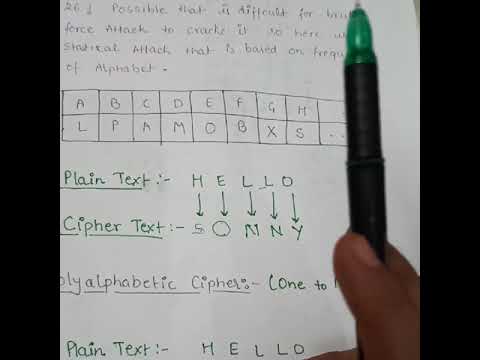 26! Possible that is difficult for
force Attack to crack it so here
Statical Attack that is based on
of Alphabet.
A B C D E F G H
L P A M O B X S ..
Plain Text:- H E L L O
Cipher Text:- S O N N Y
Cipher:- (One to
Plain Text:- H E L L O